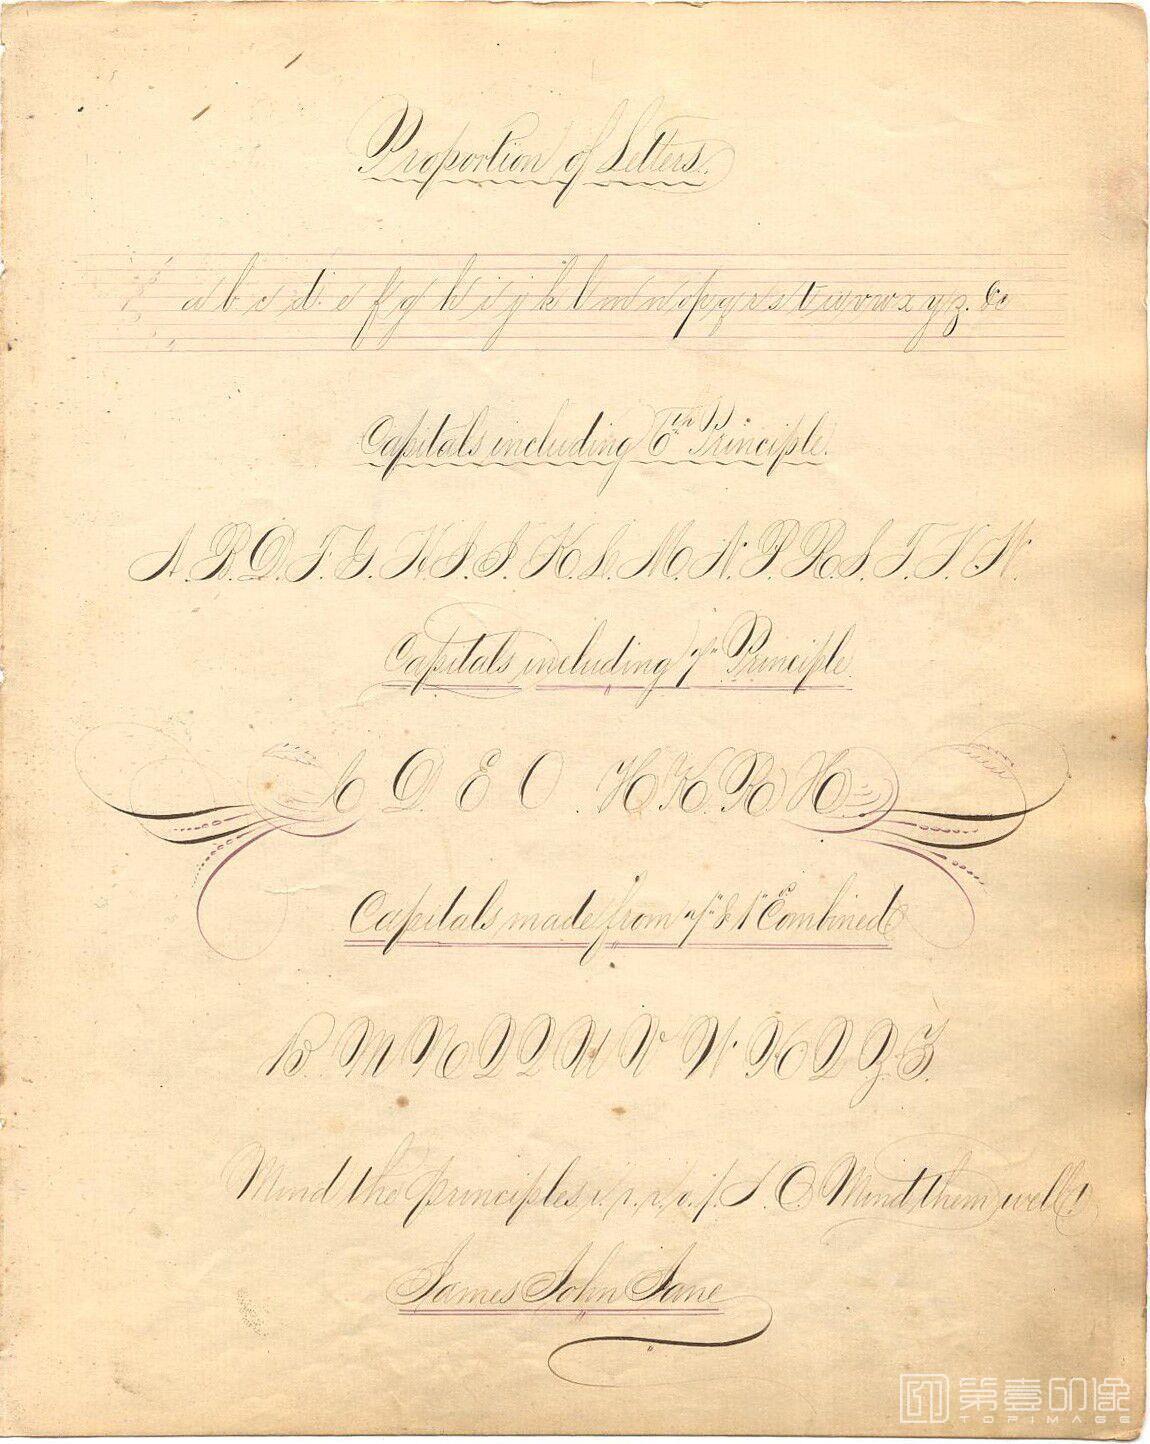 Proportion of Letters.
a b c d e f g h i j k l m n o p q r s t u v w x y z. &c
Capitals including 6th Principle.
A. B. D. F. G. H. I. J. K. L. M. N. P. R. S. T. V. W.
Capitals including 7th Principle.
A D. E O. H K. R X
Capitals made from 7th & 1st Combined
W. X Q Z.
Mind the principles Mind them well!
James John Jane
第壹印像
TOPIMAGE